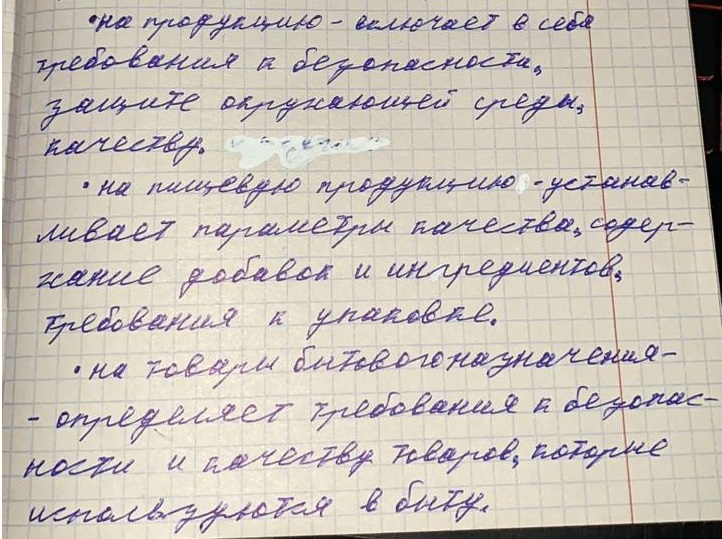 •на продукцию - включает в себя
требования к безопасности,
защите окружающей среды,
качеству.
•на пищевую продукцию -устанав-
ливает параметры качества, содер-
жание добавок и ингредиентов,
требования к упаковке.
•на товары бытового назначения-
- определяет требования к безопас-
ности и качеству товаров, которые
используются в быту.